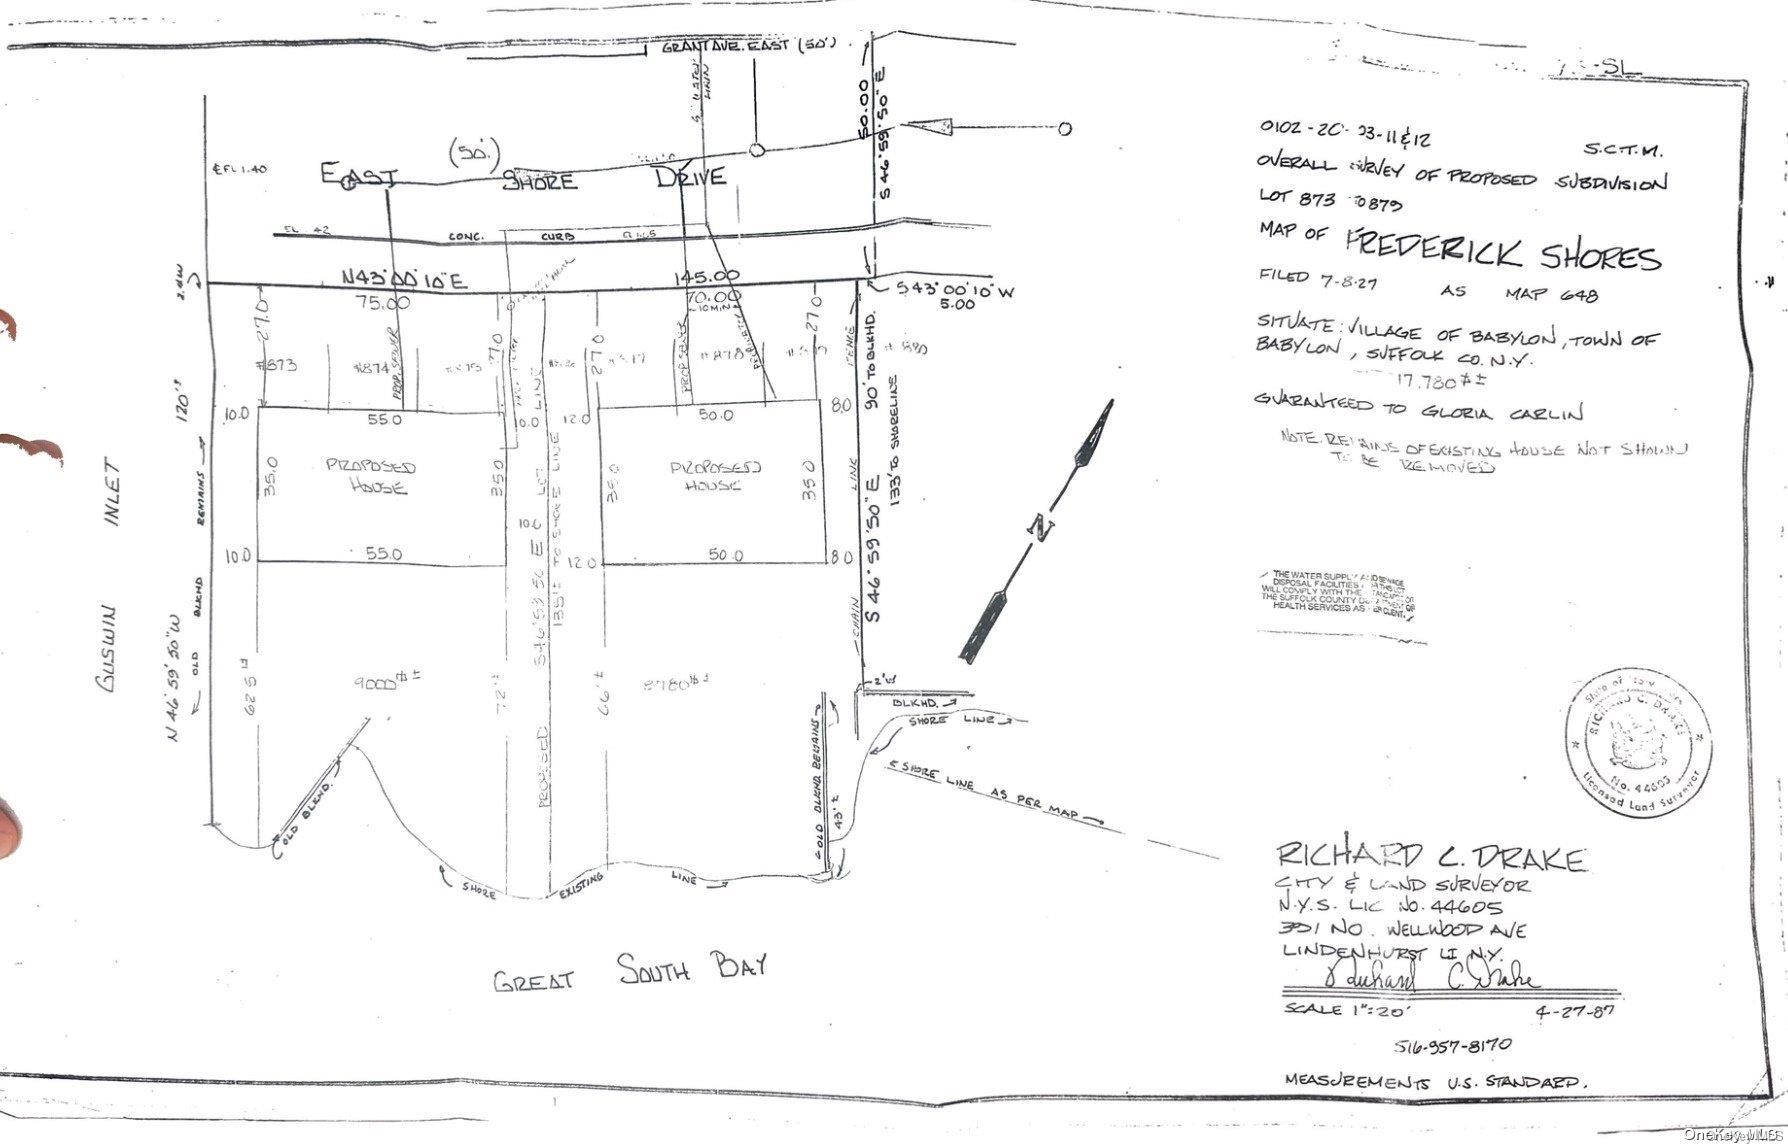 GRANT AVE. EAST (50')
50.00
S 46°59'50" E
¢ FL 1.40
(50')
EAST SHORE DRIVE
CONC. CURB
N43°00'10"E 145.00
75.00
70.00
S 43°00'10" W
5.00
27.0
27.0
27.0
27.0
#873
#874
#878
PROP. SEWER
10.0
55.0
10.0
12.0
50.0
8.0
PROPOSED
HOUSE
35.0
35.0
PROPOSED
HOUSE
35.0
35.0
10.0
55.0
10.0
12.0
50.0
8.0
120'±
REMAINS
BLKHD
OLD
N 46°59'50"W
GUSWIN INLET
62.5'±
9000#±
72'±
66'±
8780#±
PROPOSED S46°59'50" E LOT LINE
135'± TO SHORE LINE
CHAIN LINK FENCE
S 46°59'50" E 90' TO BLKHD.
133' TO SHORELINE
N
2'W
BLKHD.
SHORE LINE
SHORE LINE AS PER MAP
OLD BLKHD REMAINS
43'±
OLD BLKHD.
SHORE
EXISTING
LINE
GREAT SOUTH BAY
S.C.T.M.
OVERALL SURVEY OF PROPOSED SUBDIVISION
LOT 873
MAP OF FREDERICK SHORES
FILED 7-8-27 AS MAP 648
SITUATE: VILLAGE OF BABYLON, TOWN OF
BABYLON, SUFFOLK CO. N.Y.
17.780#±
GUARANTEED TO GLORIA CARLIN
NOTE: REMAINS OF EXISTING HOUSE NOT SHOWN
TO BE REMOVED
THE WATER SUPPLY AND SEWAGE
DISPOSAL FACILITIES
WILL COMPLY WITH THE
THE SUFFOLK COUNTY
HEALTH SERVICES AS
RICHARD C. DRAKE
No. 44605
Licensed Land Surveyor
RICHARD C. DRAKE
CITY & LAND SURVEYOR
N.Y.S. LIC No. 44605
391 NO. WELLWOOD AVE
LINDENHURST LI N.Y.
Richard C. Drake
SCALE 1"=20' 4-27-87
516-957-8170
MEASUREMENTS U.S. STANDARD.
OneKey MLS